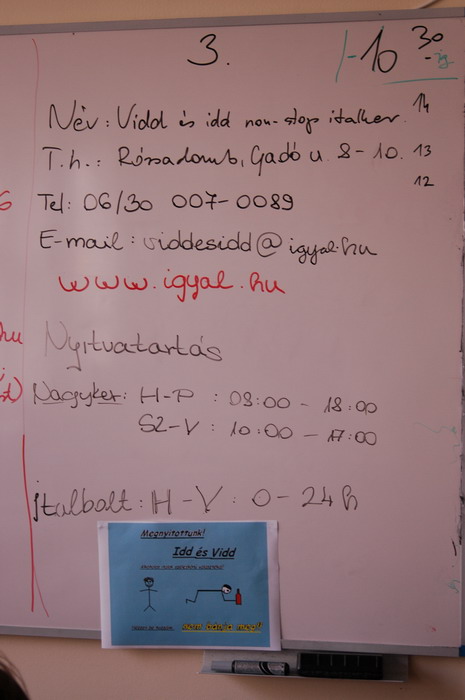 3.
-10 30
-ig
Név: Vidd és idd non-stop italker. 14
T.h.: Rózsadomb, Gadó u. 8-10. 13
12
Tel: 06/30 007-0089
E-mail: viddesidd@igyal.hu
www.igyal.hu
Nyitvatartás
Nagyker: H-P : 09:00 - 18:00
SZ-V : 10:00 - 17:00
Italbolt: H-V: 0-24h
Megnyitottunk!
Idd és Vidd
Nem bánja meg!!